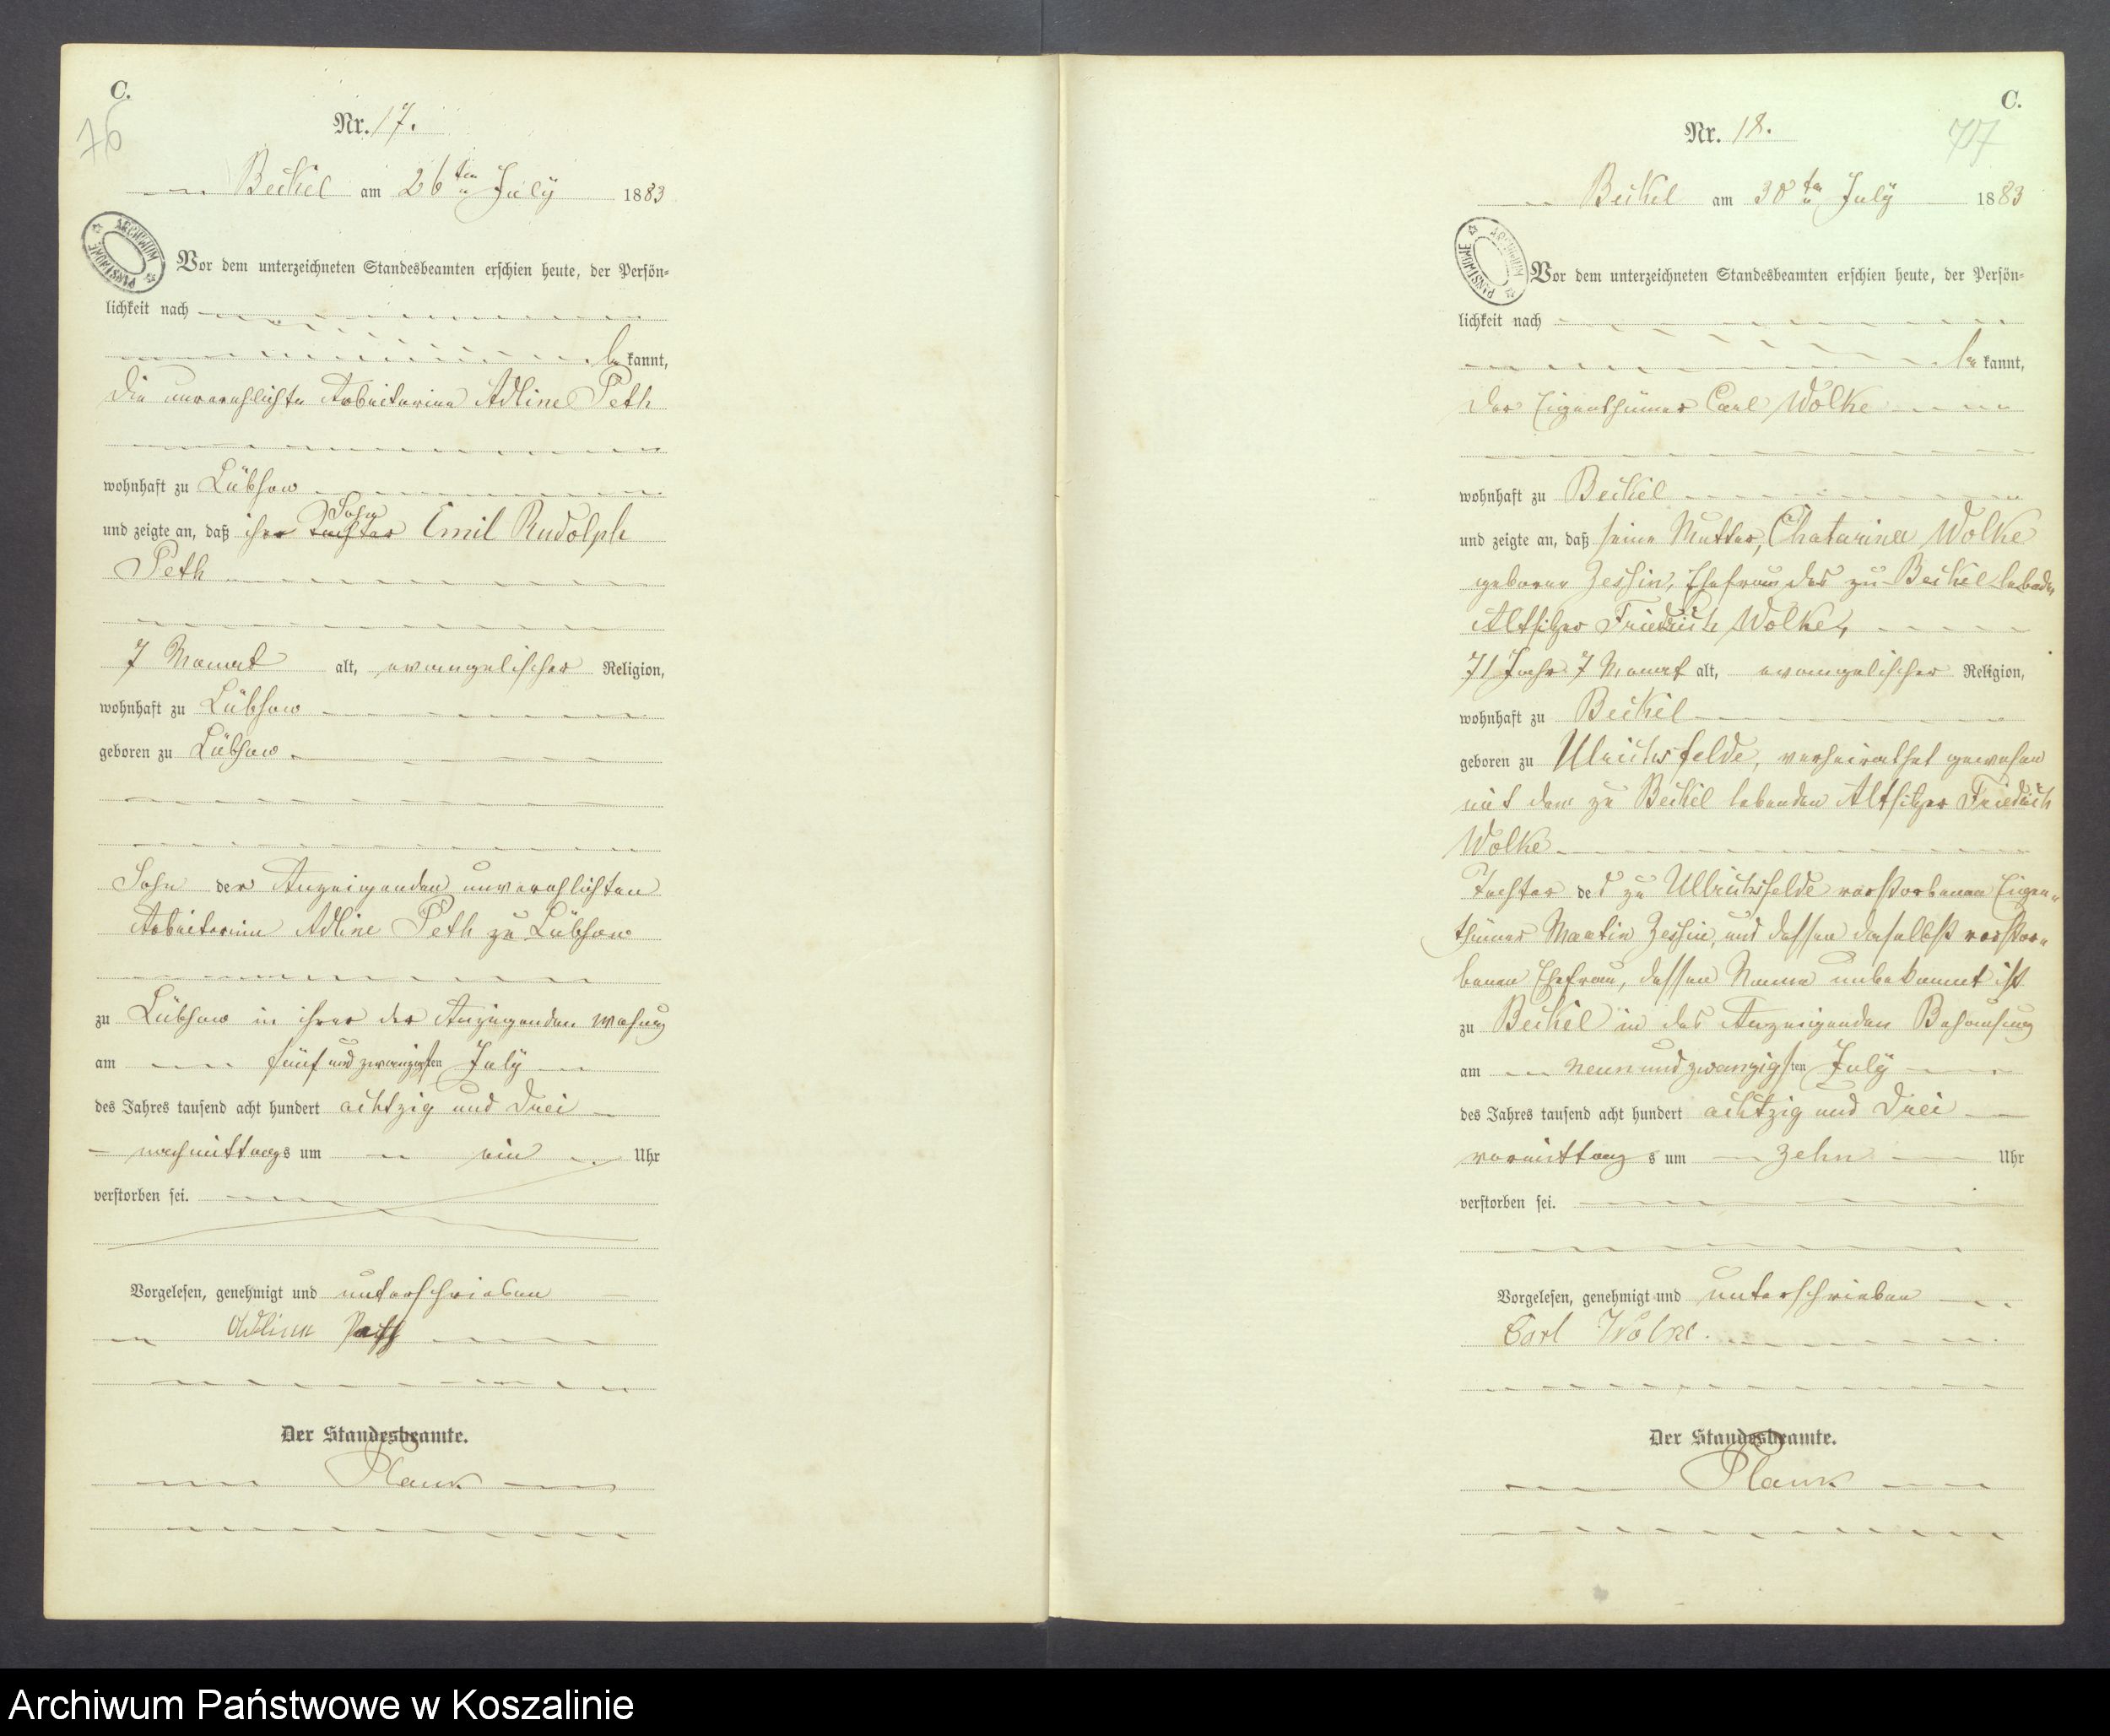 C.
76
Nr. 17.
Beckel am 26ten July 1883
ARCHIWUM PAŃSTWOWE
Vor dem unterzeichneten Standesbeamten erschien heute, der Persön-
lichkeit nach
be kannt,
die unverehlichte Arbeiterinn Adline Peth
wohnhaft zu Lübsow
Sohn
und zeigte an, daß ihr Tochter Emil Rudolph
Peth
7 Monat alt, evangelischer Religion,
wohnhaft zu Lübsow
geboren zu Lübsow
Sohn der Anzeigenden unverehlichten
Arbeiterinn Adline Peth zu Lübsow
zu Lübsow in ihrer der Anzeigenden
am fünf und zwanzigsten July
des Jahres tausend acht hundert achtzig und drei
nachmittags um ein Uhr
verstorben sei.
Vorgelesen, genehmigt und unterschrieben
Adline Peth
Der Standesbeamte.
Plank
C.
77
Nr. 18.
Beckel am 30ten July 1883
ARCHIWUM PAŃSTWOWE
Vor dem unterzeichneten Standesbeamten erschien heute, der Persön-
lichkeit nach
be kannt,
der Eigenthümer Carl Wolke
wohnhaft zu Beckel
und zeigte an, daß seine Mutter, Chatarina Wolke
geboren Zessin, Ehefrau des zu Beckel
Altsitzer Friedrich Wolke,
71 Jahr 7 Monat alt, evangelischer Religion,
wohnhaft zu Beckel
geboren zu Ulrichsfelde, verheirathet gewesen
mit dem zu Beckel lebenden Altsitzer Friedrich
Wolke
Tochter des zu Ullrichsfelde verstorbenen Eigen-
thümer Martin Zessin, und dessen daselbst verstor-
benen Ehefrau, dessen Name unbekannt ist
zu Beckel in des Anzeigenden Behausung
am neunundzwanzigsten July
des Jahres tausend acht hundert achtzig und drei
vormittags um zehn Uhr
verstorben sei.
Vorgelesen, genehmigt und unterschrieben
Carl Wolke.
Der Standesbeamte.
Plank
Archiwum Państwowe w Koszalinie